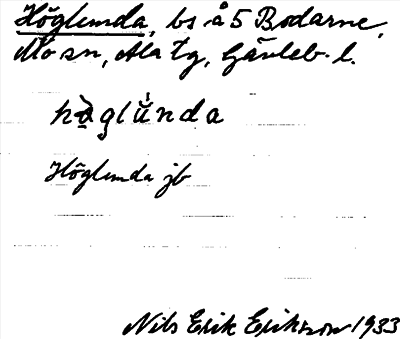 Höglunda, bs å 5 Bodarne,
Mo sn, Ala tg, Gävleb. l.
hàglúnda
Höglunda jb
Nils Erik Eriksson 1933